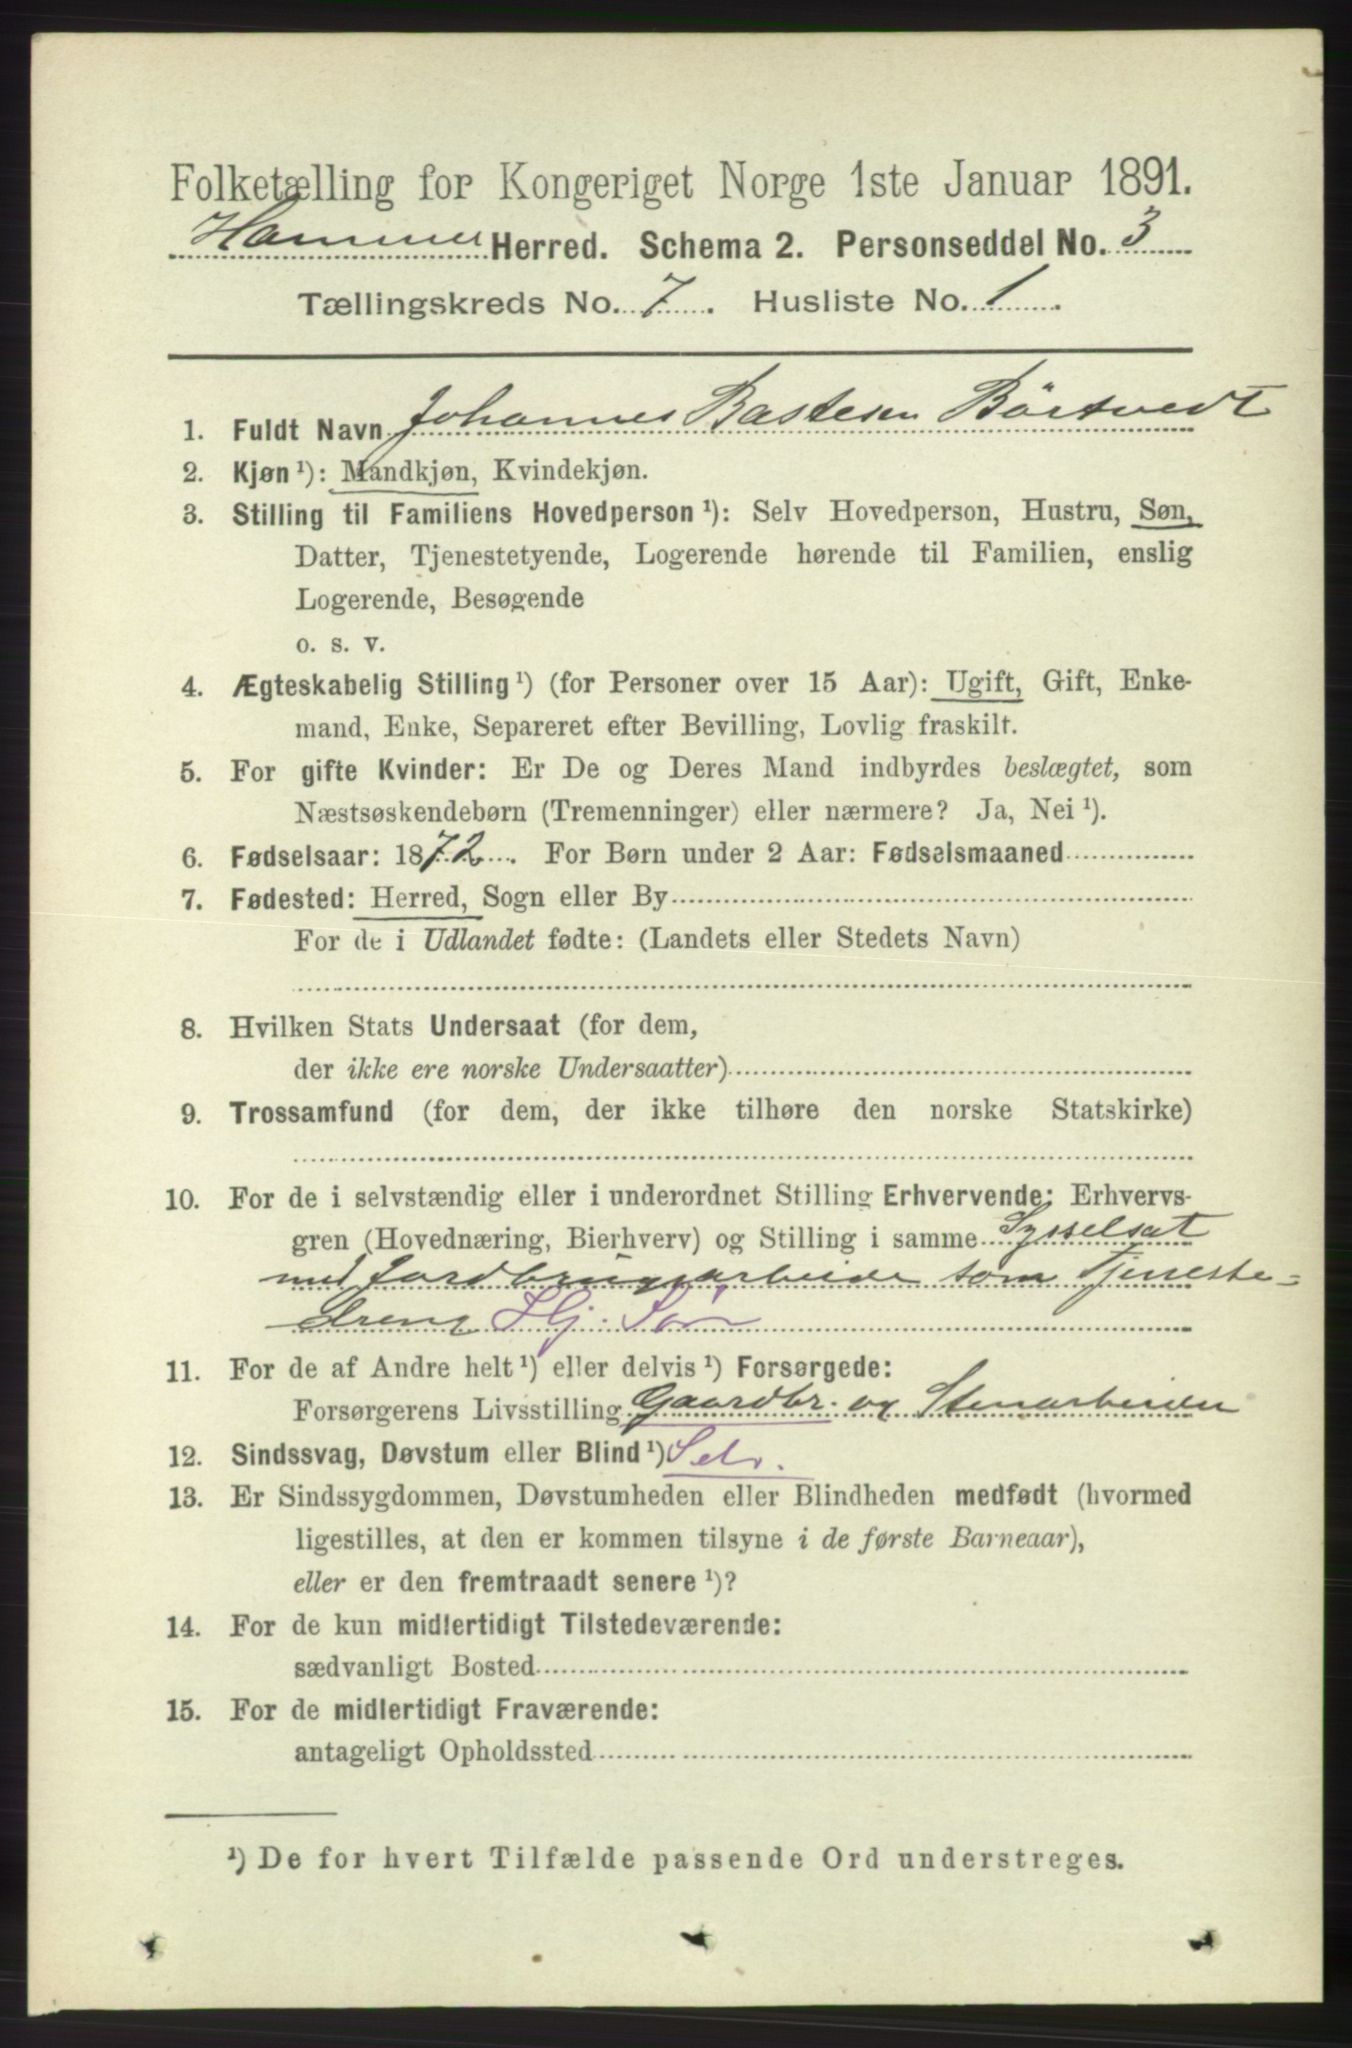 Folketælling for Kongeriget Norge 1ste Januar 1891.
Hammer Herred. Schema 2. Personseddel No. 3
Tællingskreds No. 7. Husliste No. 1.
1. Fuldt Navn Johannes Bastesen Börtvedt
2. Kjøn ¹): Mandkjøn, Kvindekjøn.
3. Stilling til Familiens Hovedperson ¹): Selv Hovedperson, Hustru, Søn,
Datter, Tjenestetyende, Logerende hørende til Familien, enslig
Logerende, Besøgende
o. s. v.
4. Ægteskabelig Stilling ¹) (for Personer over 15 Aar): Ugift, Gift, Enke-
mand, Enke, Separeret efter Bevilling, Lovlig fraskilt.
5. For gifte Kvinder: Er De og Deres Mand indbyrdes beslægtet, som
Næstsøskendebørn (Tremenninger) eller nærmere? Ja, Nei ¹).
6. Fødselsaar: 1872. For Børn under 2 Aar: Fødselsmaaned
7. Fødested: Herred, Sogn eller By
For de i Udlandet fødte: (Landets eller Stedets Navn)
8. Hvilken Stats Undersaat (for dem,
der ikke ere norske Undersaatter)
9. Trossamfund (for dem, der ikke tilhøre den norske Statskirke)
10. For de i selvstændig eller i underordnet Stilling Erhvervende: Erhvervs-
gren (Hovednæring, Bierhverv) og Stilling i samme Sysselsat
med Jordbrugsarbeide som Tjeneste=
dreng Hj. Søn
11. For de af Andre helt ¹) eller delvis ¹) Forsørgede:
Forsørgerens Livsstilling Gaardbr. og Stenarbeider
12. Sindssvag, Døvstum eller Blind ¹) Selv.
13. Er Sindssygdommen, Døvstumheden eller Blindheden medfødt (hvormed
ligestilles, at den er kommen tilsyne i de første Barneaar),
eller er den fremtraadt senere ¹)?
14. For de kun midlertidigt Tilstedeværende:
sædvanligt Bosted
15. For de midlertidigt Fraværende:
antageligt Opholdssted
¹) De for hvert Tilfælde passende Ord understreges.